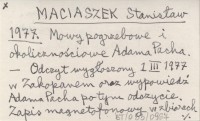 MACIASZEK Stanisław
1977. Mowy pogrzebowe i
okolicznościowe Adama Pacha.
— Odczyt wygłoszony 2 III 1977
w Zakopanem oraz wypowiedź
Adama Pacha po tym odczycie.
Zapis magnetofonowy w zbiorach